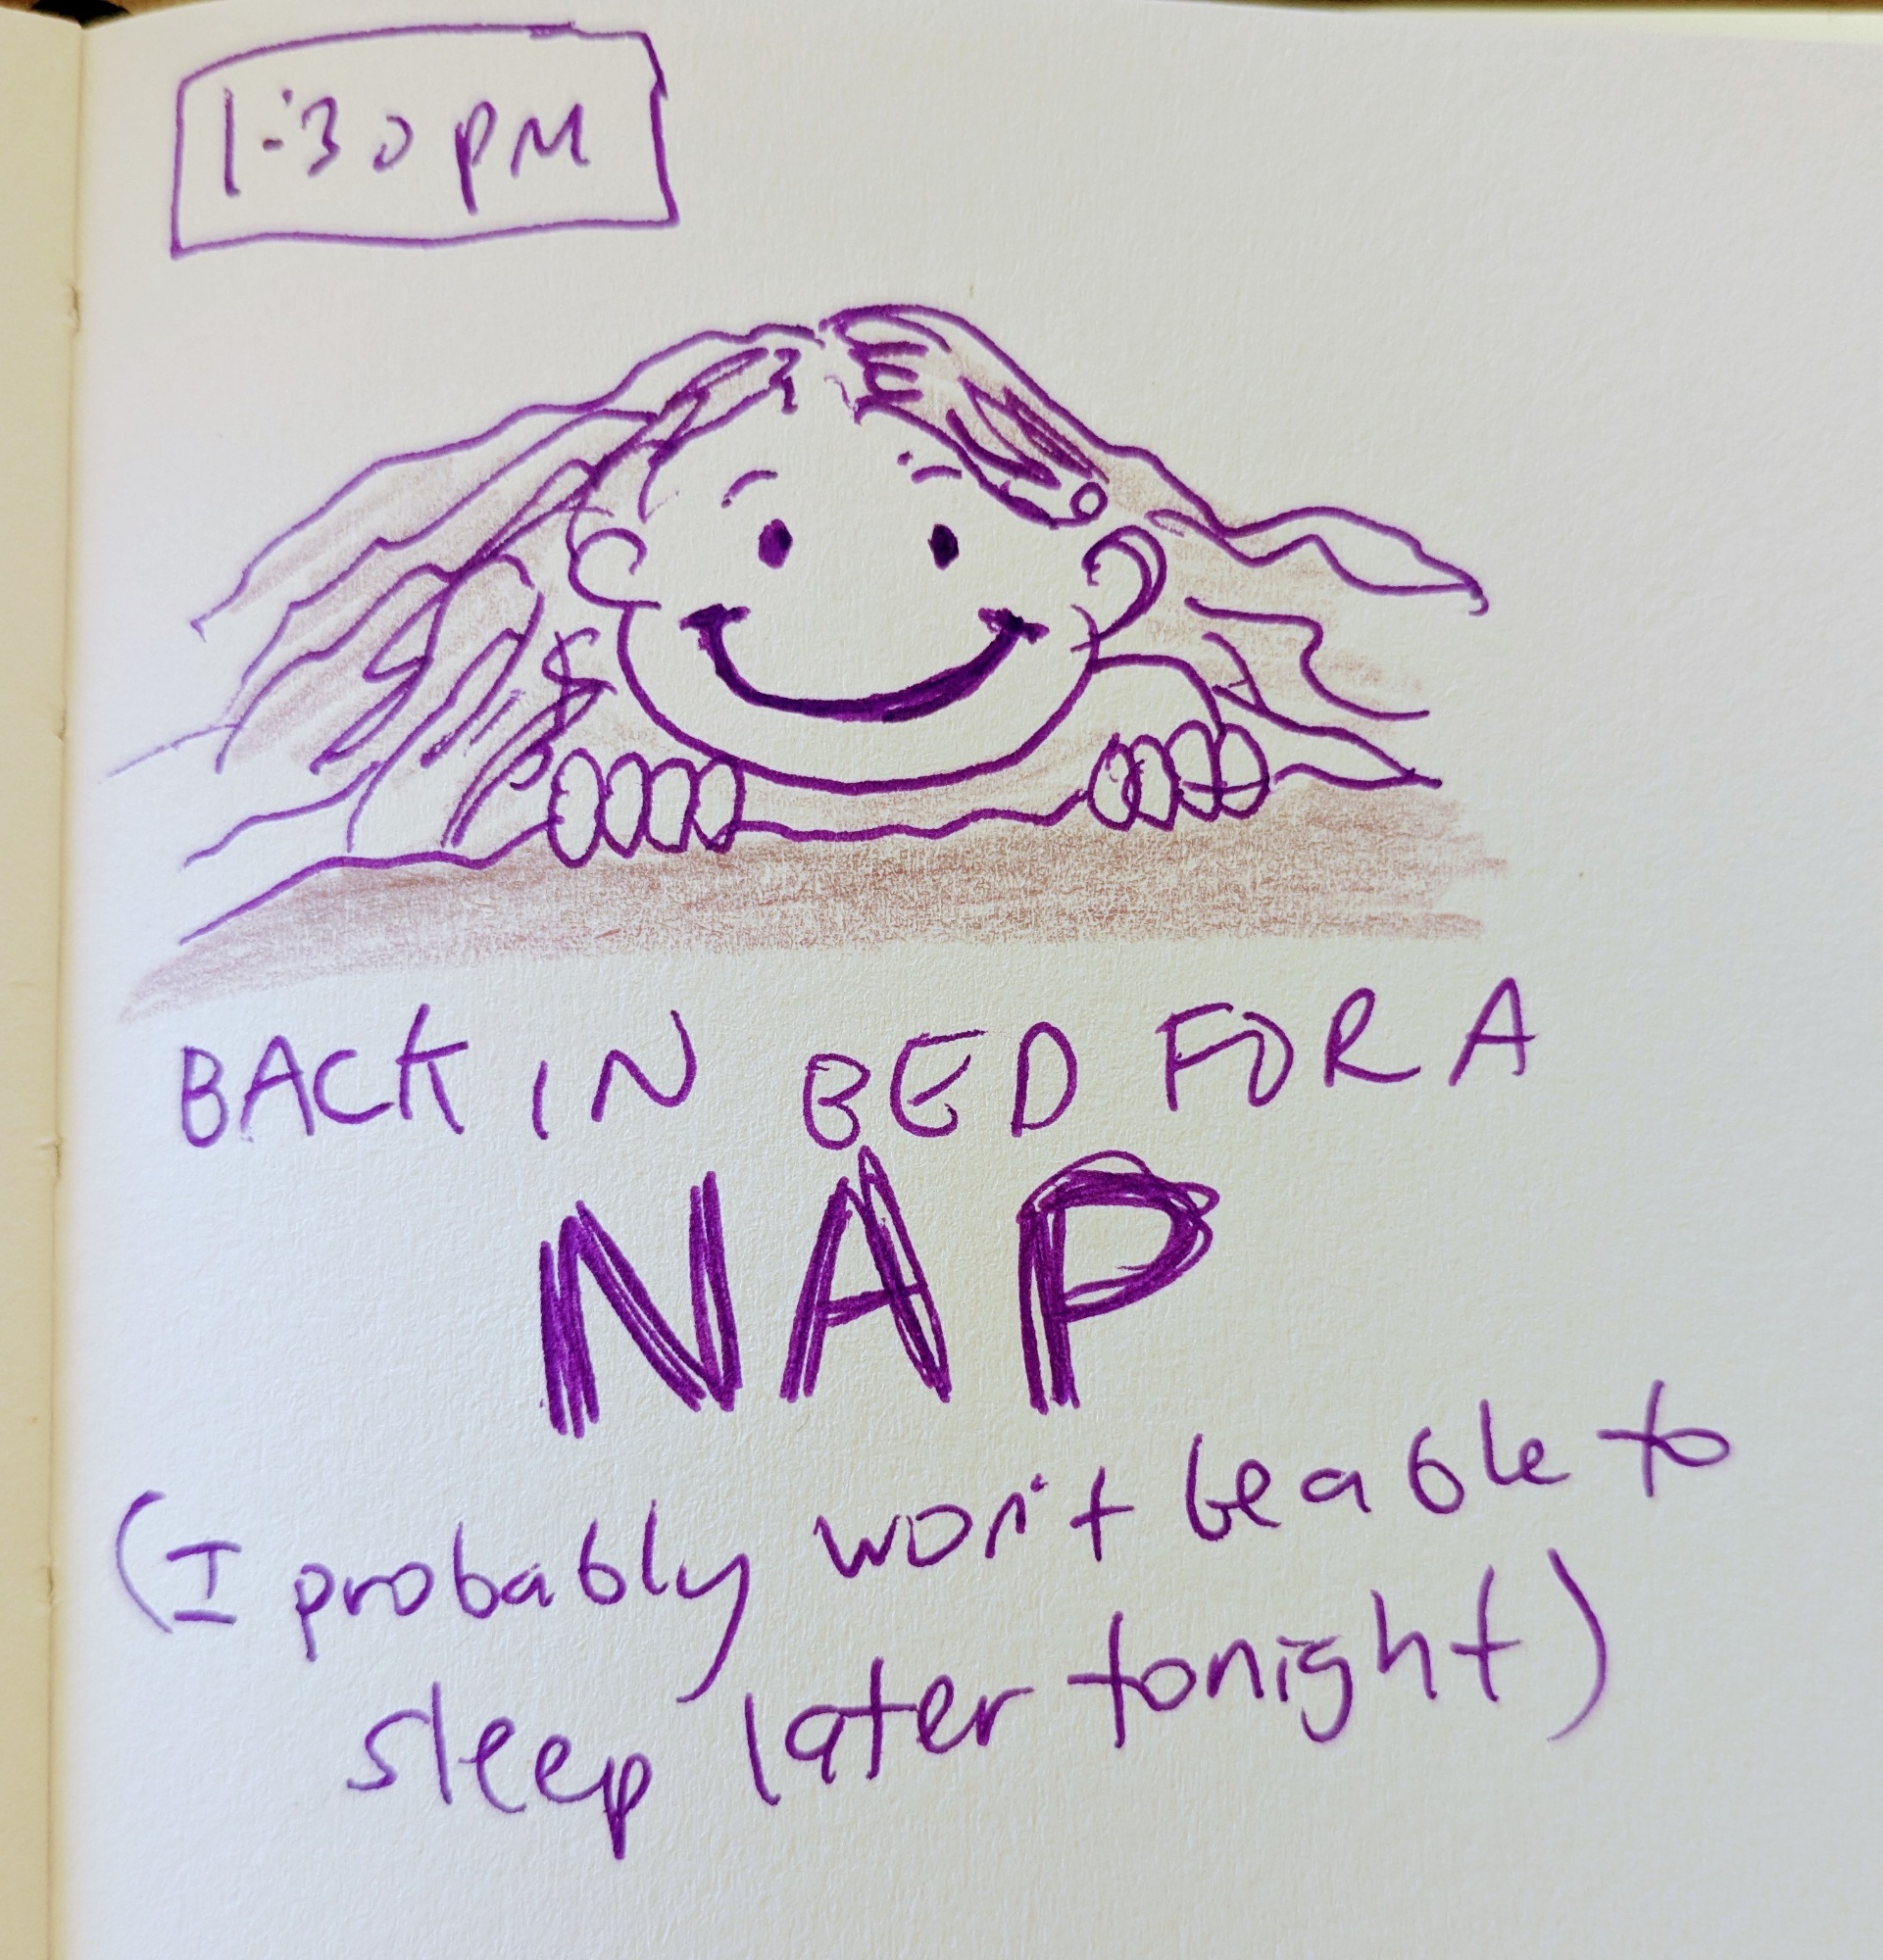 1:30 PM
BACK IN BED FOR A
NAP
(I probably won't be able to
sleep later tonight)